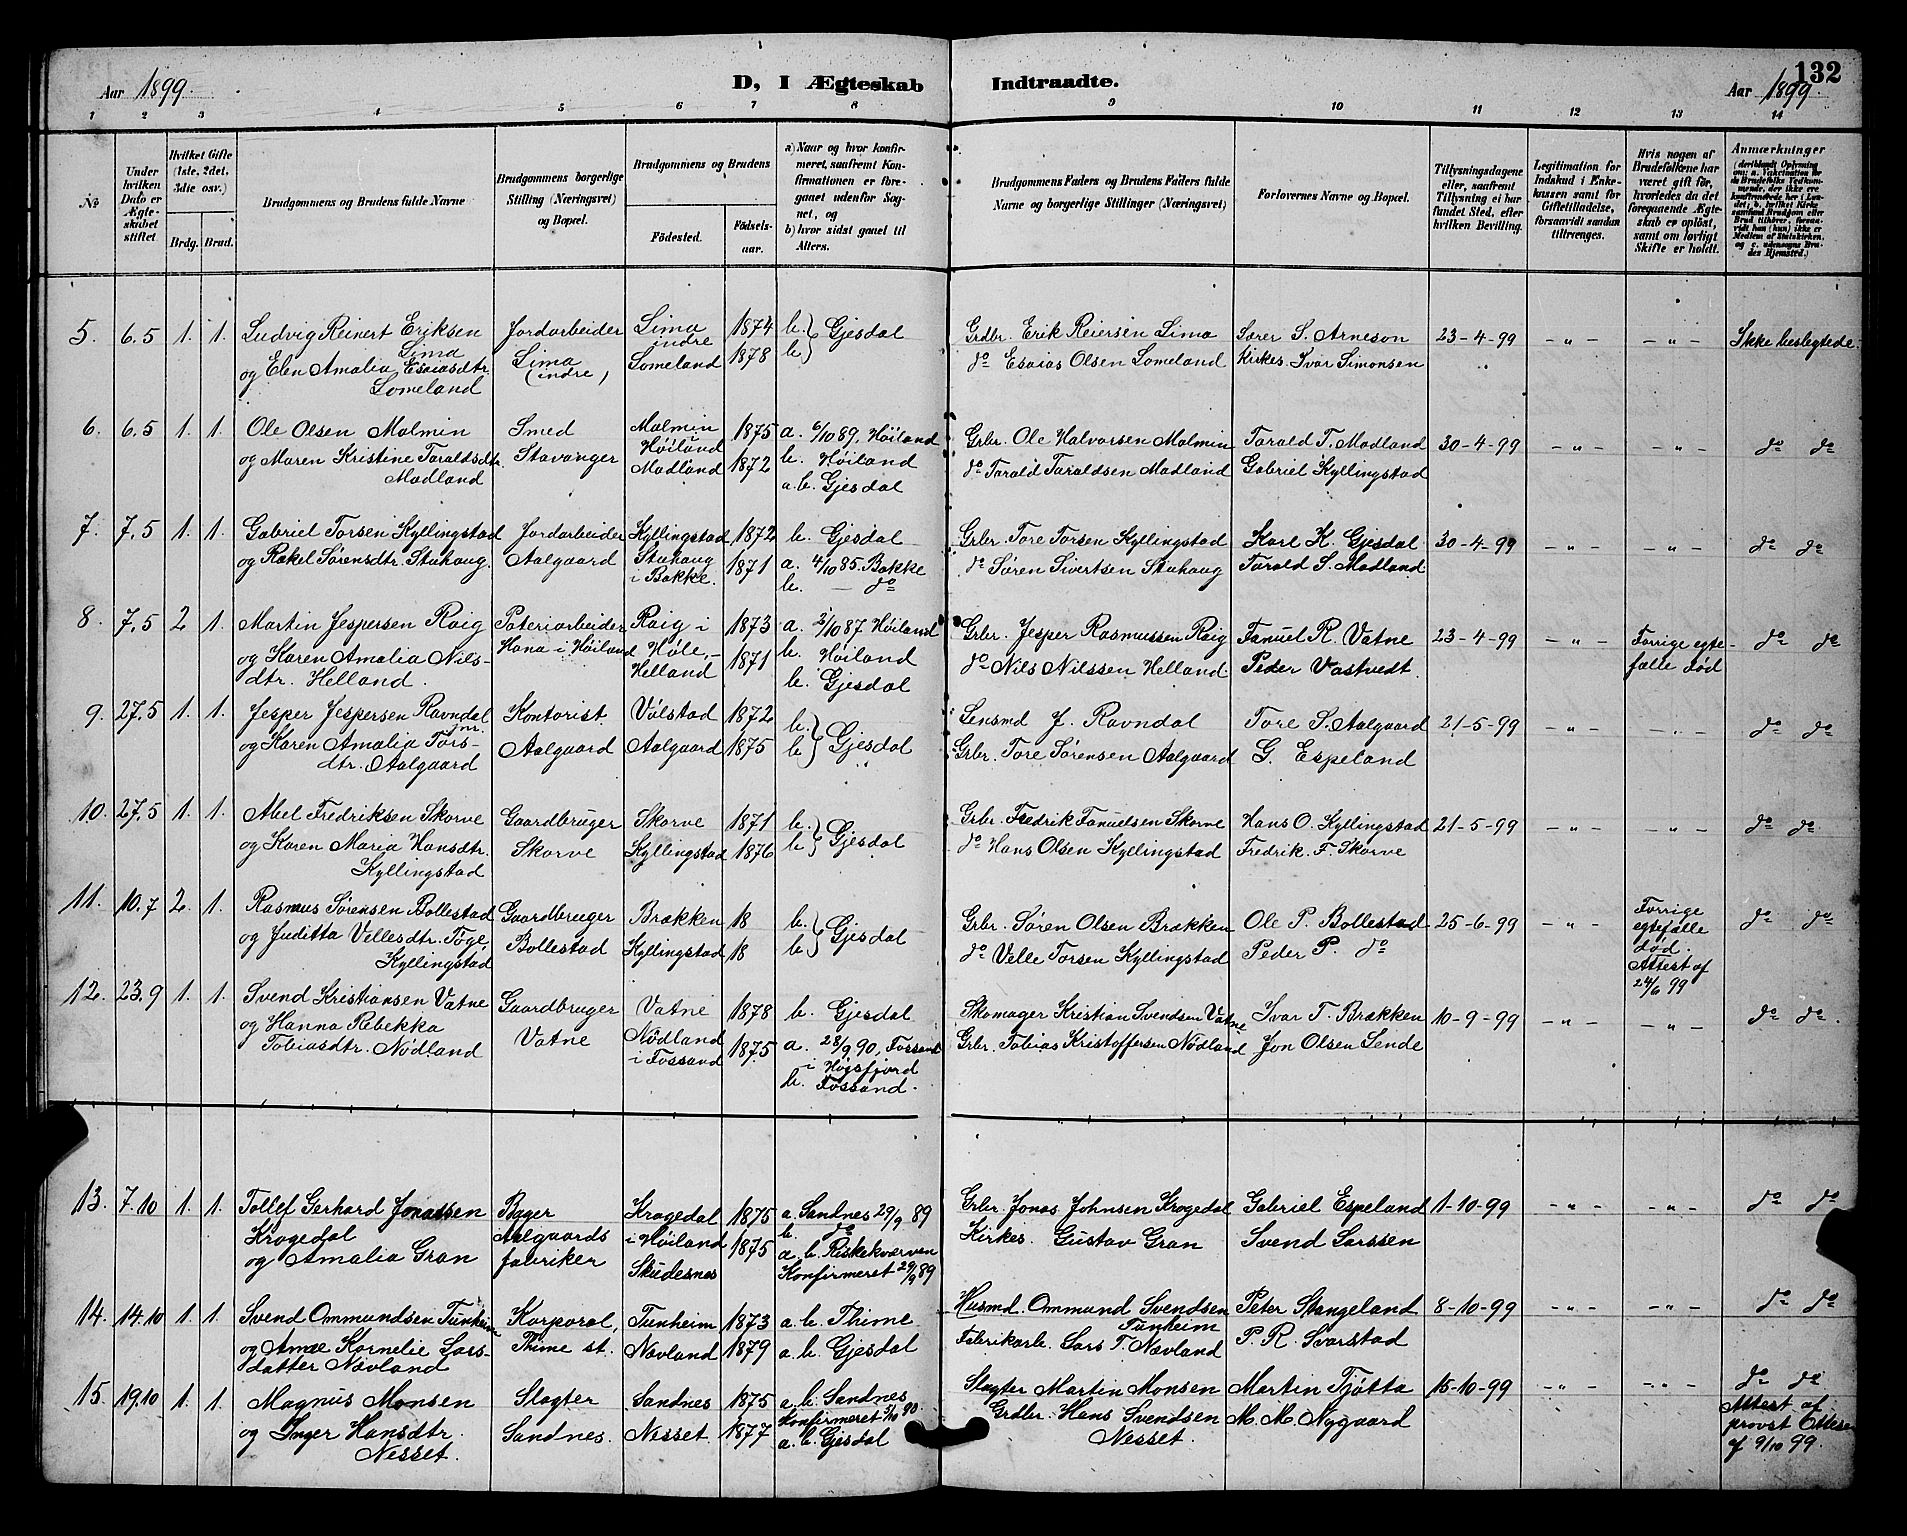 Aar 1899.
D, I Ægteskab Indtraadte.
132
Aar 1899
1 2 3 4 5 6 7 8 9 10 11 12 13 14
No
Under hvilken Dato er Ægteskabet stiftet
Hvilket Gifte (1ste, 2det, 3die osv.)
Brdg. Brud.
Brudgommens og Brudens fulde Navne
Brudgommens borgerlige Stilling (Næringsvei) og Bopæl.
Brudgommens og Brudens
Fødested.
Fødselsaar.
a) Naar og hvor konfirmeret, saafremt Konfirmationen er foregaaet udenfor Sognet, og
b) hvor sidst gaaet til Alters.
Brudgommens Faders og Brudens Faders fulde Navne og borgerlige Stillinger (Næringsvei)
Forlovernes Navne og Bopæl.
Tillysningsdagene eller, saafremt Tillysning ei har fundet Sted, efter hvilken Bevilling.
Legitimation for Indskud i Enkekassen samt for Giftetilladelse, forsaavidt saadan tiltrænges.
Hvis nogen af Brudefolkene har været gift før, hvorledes da det foregaaende Ægteskab er opløst, samt om lovligt Skifte er holdt.
Anmærkninger
(deriblandt Oplysning om: a. Vaccination for de Brudefolks Vedkommende, der ikke ere konfirmerede her i Landet; b. hvilket Kirkesamfund Brudgom eller Brud tilhører, forsaavidt han (hun) ikke er Medlem af Statskirken, og c. udensogns Brudes Hjemsted.)
5. 6.5 1. 1. Ludvig Reinert Eriksen Jordarbeider Lima 1874 b. } Gjesdal Grdbr. Erik Reiersen Lima Lærer S. Arneson 23-4-99 - " - - " - Ikke beslegtede
Lima Lima indre
og Elen Amalia Esaiasdtr. (indre) Lomeland 1878 b. do Esaias Olsen Lomeland Kirkes. Ivar Simonsen
Lomeland
6. 6.5 1. 1. Ole Olsen Malmin Smed Malmin 1875 a. 6/10 89, Høiland Grbr. Ole Halvorsen Malmin Tarald T. Madland 30-4-99 - " - - " - do do
Høiland b. Høiland
og Maren Kristine Taraldsdtr. Stavanger Madland 1872 a.b. Gjesdal do Tarald Taraldsen Madland Gabriel Kyllingstad
Madland
7. 7.5 1. 1. Gabriel Torsen Kyllingstad Jordarbeider Kyllingstad 1872 b. Gjesdal Grbr. Tore Torsen Kyllingstad Karl K. Gjesdal 30-4-99 - " - - " - do do
og Rakel Sørensdtr. Stuhaug. Aalgaard Stuhaug 1871 a. 4/10 85. Bakke do Søren Sivertsen Stuhaug Tarald S. Madland
i Bakke. b. - do
8. 7.5 2 1. Martin Jespersen Raig Poteriarbeider Raig i 1873 a. 2/10 87 Høiland Grbr. Jesper Rasmussen Raig Fanuel R. Vatne 23-4-99 - " - Forrige egte- do do
og Karen Amalia Nils- Hana i Høiland Høle,- 1871 b. Høiland do Nils Nilssen Helland Peder Vastvedt. fælle død
dtr. Helland. Helland b. Gjesdal
9. 27.5 1. 1. Jesper Jespersen Ravndal Kontorist Vølstad 1872 b. } Gjesdal Lensmd J. Ravndal Tore S. Aalgaard 21-5-99 - " - - " - do do
jnr.
og Karen Amalia Tors- Aalgaard Aalgaard 1875 b. Grbr. Tore Sørensen Aalgaard G. Espeland
dtr. Aalgaard
10. 27.5 1. 1. Abel Fredriksen Skorve Gaardbruger Skorve 1871 b. } Gjesdal Grbr. Fredrik Fanuelsen Skorve Hans O. Kyllingstad 21-5-99 - " - - " - do do
og Karen Maria Hansdtr. Skorve Kyllingstad 1876 b. do Hans Olsen Kyllingstad Fredrik. F. Skorve
Kyllingstad
11. 10.7 2. 1. Rasmus Sørensen Bollestad Gaardbruger Brækken 18 b. } Gjesdal Grbr. Søren Olsen Brækken Ole P. Bollestad 25-6-99 - " - Forrige egtefælle død. do do
og Juditta Vellesdtr. Tøge, Bollestad Kyllingstad 18 b. do Velle Torsen Kyllingstad Peder P. do Attest af 24/6 99
Kyllingstad
12. 23.9 1. 1. Svend Kristiansen Vatne Gaardbruger Vatne 1878 b. Gjesdal Skomager Kristian Svendsen Vatne Ivar T. Brækken 10-9-99 - " - - " - do do.
og Hanna Rebekka Vatne Nødland 1875 a. 28/9 90, Fossand Grbr. Tobias Kristoffersen Nødland Jon Olsen Lende
Tobiasdtr. Nødland i Fossand i Høgsfjord
b. Fossand.
13. 7.10 1. 1. Tollef Gerhard Jonassen Bager Krogedal 1875 a. Sandnes 29/9 89 Grbr. Jonas Johnsen Krogedal Gabriel Espeland 1-10-99 - " - - " - do do
Krogedal Aalgaards i Høiland b. do Kirkes. Gustav Gran Svend Larssen
og Amalia Gran fabriker Skudesnes 1875 a. b. Riskekværven
Konfirmeret 29/9 89
14. 14.10 1. 1. Svend Ommundsen Tunheim Korporal, Tunheim 1873 a. b. Thime Husmd. Ommund Svendsen Peter Stangeland 8-10-99 - " - - " - do do
Tunheim
og Amæ Kornelie Lars- Thime st. Nævland 1879 a. b. Gjesdal Fabrikarb. Lars T. Nævland P. R. Svarstad
datter Nævland
15. 19.10 1. 1. Magnus Monsen Slagter Sandnes 1875 a. b. Sandnes Slagter Martin Monsen Martin Tjøtta 15-10-99 - " - - " - do do
Konfirmeret 5/10 90 Attest af
og Inger Hansdtr. Sandnes. Nesset. 1877 a. b. Gjesdal Grdbr. Hans Svendsen M. M. Nygaard provst
Nesset. Nesset. af 9/10 99.